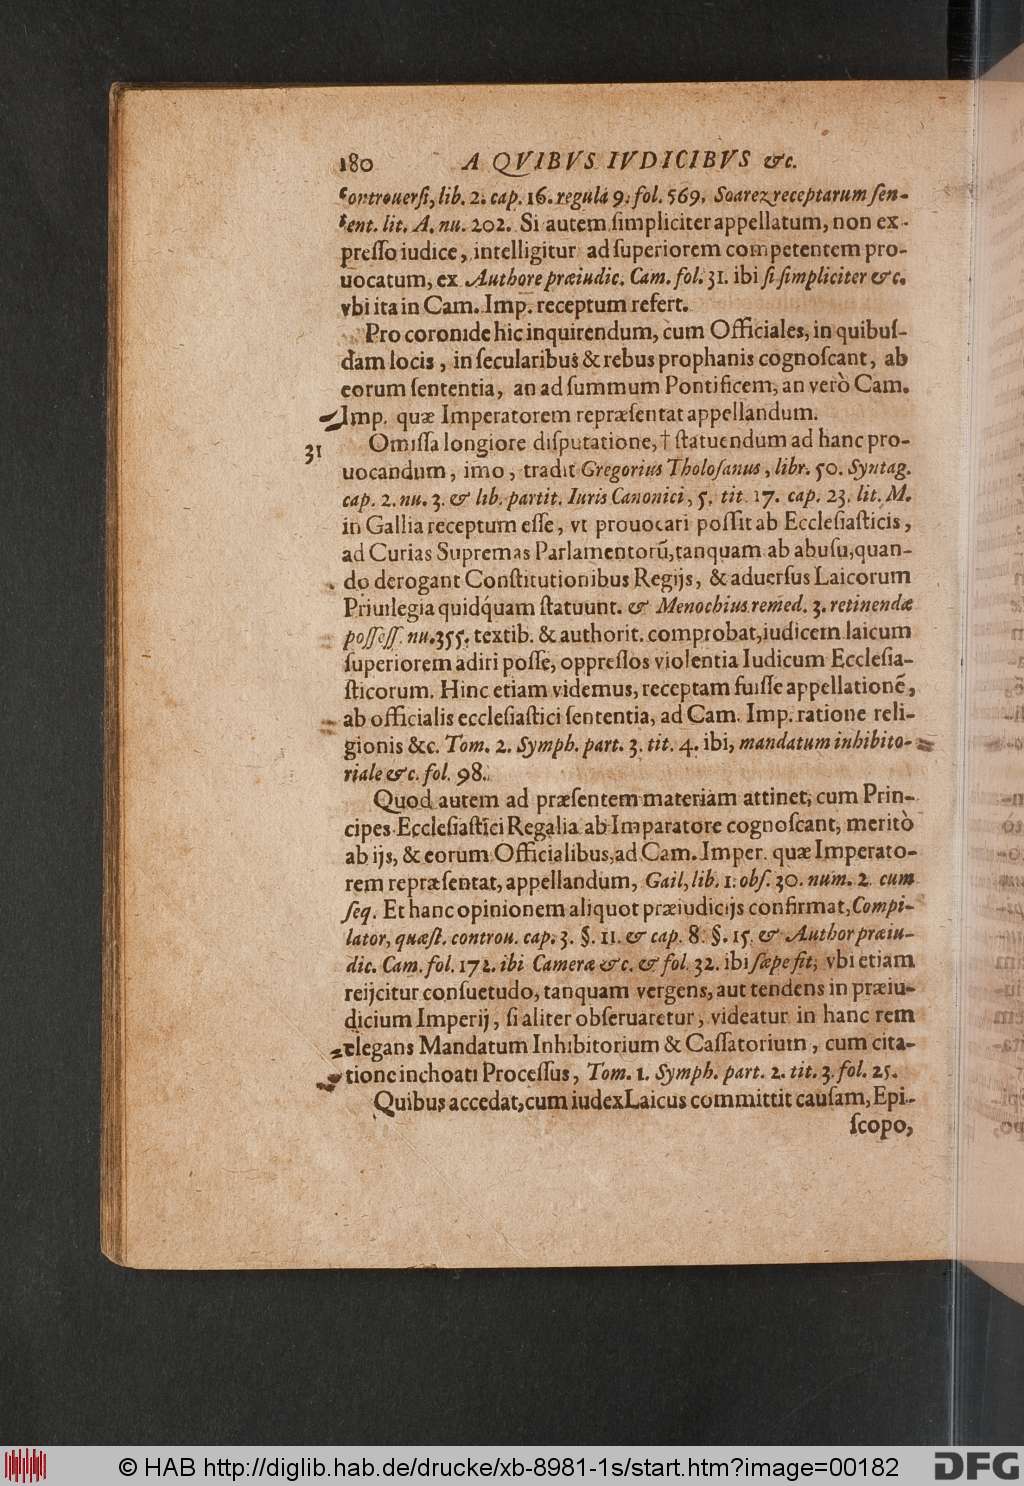 180 A QVIBVS IVDICIBVS &c.
Controuersi, lib. 2. cap. 16. regula 9. fol. 569. Soarez receptarum sen-
tent. lit. A. nu. 202. Si autem ſimpliciter appellatum, non ex-
preſſo iudice, intelligitur ad ſuperiorem competentem pro-
uocatum, ex Authore præiudic. Cam. fol. 31. ibi ſi ſimpliciter &c.
vbi ita in Cam. Imp. receptum refert.
Pro coronide hic inquirendum, cum Officiales, in quibuſ-
dam locis, in ſecularibus & rebus prophanis cognoſcant, ab
eorum ſententia, an ad ſummum Pontificem, an verò Cam.
Imp. quæ Imperatorem repræſentat appellandum.
31 Omiſſa longiore diſputatione, † ſtatuendum ad hanc pro-
uocandum, imo, tradit Gregorius Tholoſanus, libr. 50. Syntag.
cap. 2. nu. 3. & lib. partit. Iuris Canonici, 5. tit. 17. cap. 23. lit. M.
in Gallia receptum eſſe, vt prouocari poſſit ab Eccleſiaſticis,
ad Curias Supremas Parlamentorũ, tanquam ab abuſu, quan-
do derogant Conſtitutionibus Regijs, & aduerſus Laicorum
Priuilegia quidquam ſtatuunt. & Menochius remed. 3. retinendæ
poſſeſſ. nu. 355. textib. & authorit. comprobat, iudicem laicum
ſuperiorem adiri poſſe, oppreſſos violentia Iudicum Eccleſia-
ſticorum. Hinc etiam videmus, receptam fuiſſe appellationẽ,
ab officialis eccleſiaſtici ſententia, ad Cam. Imp. ratione reli-
gionis &c. Tom. 2. Symph. part. 3. tit. 4. ibi, mandatum inhibito-
riale &c. fol. 98.
Quod autem ad præſentem materiam attinet, cum Prin-
cipes Eccleſiaſtici Regalia ab Imparatore cognoſcant, meritò
ab ijs, & eorum Officialibus, ad Cam. Imper. quæ Imperato-
rem repræſentat, appellandum, Gail, lib. 1. obſ. 30. num. 2. cum
ſeq. Et hanc opinionem aliquot præiudicijs confirmat, Compi-
lator, quæſt. controu. cap. 3. §. 11. & cap. 8. §. 15. & Author præiu-
dic. Cam. fol. 172. ibi Camera &c. & fol. 32. ibi ſæpe fit; vbi etiam
reijcitur conſuetudo, tanquam vergens, aut tendens in præiu-
dicium Imperij, ſi aliter obſeruaretur, videatur in hanc rem
elegans Mandatum Inhibitorium & Caſſatorium, cum cita-
tione inchoati Proceſſus, Tom. 1. Symph. part. 2. tit. 3. fol. 25.
Quibus accedat, cum iudex Laicus committit cauſam, Epi-
ſcopo,
© HAB http://diglib.hab.de/drucke/xb-8981-1s/start.htm?image=00182
DFG